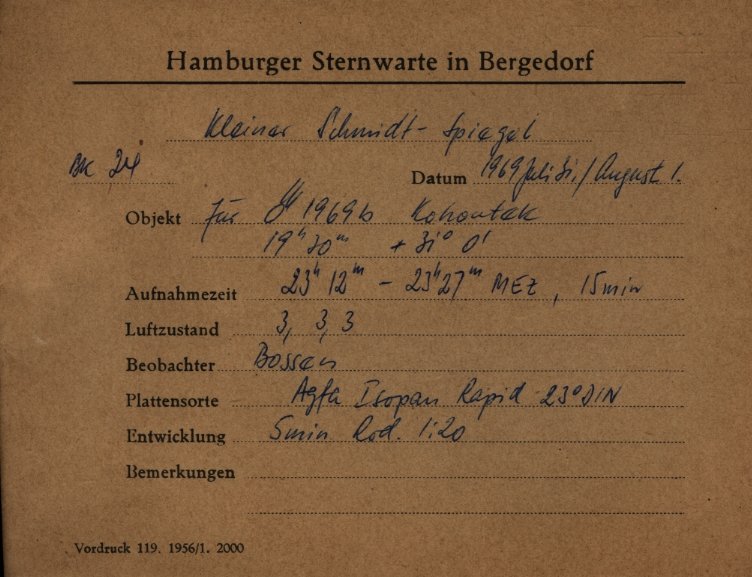 Hamburger Sternwarte in Bergedorf
Kleiner Schmidt-Spiegel
BK 24
Datum 1969 Juli 31./August 1.
Objekt für 1969b Kohoutek
19ʰ 30ᵐ + 31° 0'
Aufnahmezeit 23ʰ 12ᵐ - 23ʰ 27ᵐ MEZ, 15min
Luftzustand 3, 3, 3
Beobachter Bossen
Plattensorte Agfa Isopan Rapid 23° DIN
Entwicklung 5min Rod. 1:20
Bemerkungen
Vordruck 119. 1956/1. 2000